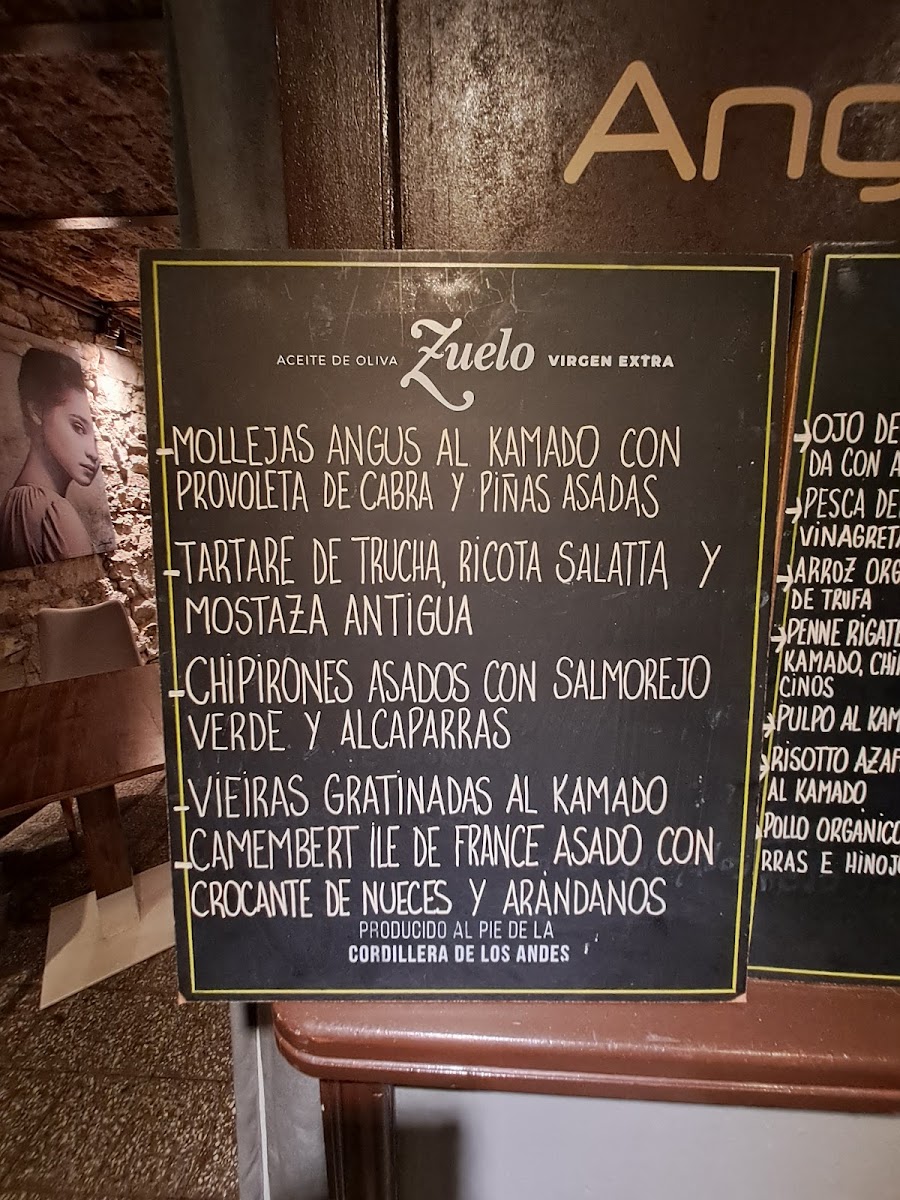 Ang
ACEITE DE OLIVA Zuelo VIRGEN EXTRA
-MOLLEJAS ANGUS AL KAMADO CON
PROVOLETA DE CABRA Y PIÑAS ASADAS
-TARTARE DE TRUCHA, RICOTA SALATTA Y
MOSTAZA ANTIGUA
-CHIPIRONES ASADOS CON SALMOREJO
VERDE Y ALCAPARRAS
-VIEIRAS GRATINADAS AL KAMADO
-CAMEMBERT ÎLE DE FRANCE ASADO CON
CROCANTE DE NUECES Y ARÁNDANOS
PRODUCIDO AL PIE DE LA
CORDILLERA DE LOS ANDES
→OJO DE
DA CON A
→PESCA DE
VINAGRETA
→ARROZ ORG
DE TRUFA
→PENNE RIGATE
KAMADO, CHI
CINOS
→PULPO AL KAM
→RISOTTO AZAF
AL KAMADO
POLLO ORGÁNICO
RRAS E HINOJO